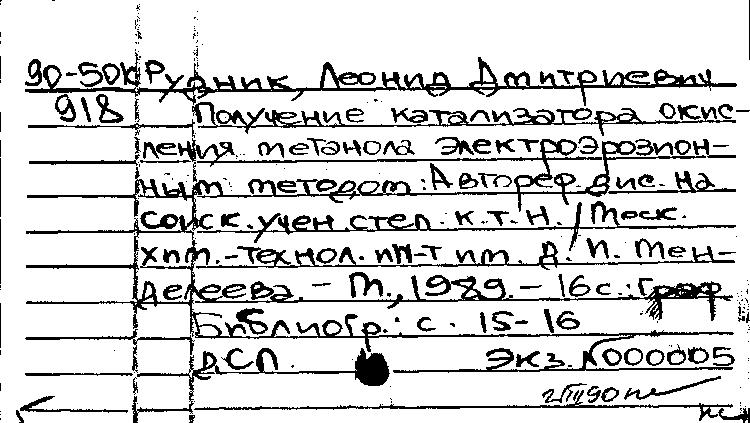 90-50к Рудник, Леонид Дмитриевич
918 Получение катализатора окис-
ления метанола электроэрозион-
ным методом: Автореф. дис. на
соиск. учен. степ. к.т.н. / Моск.
хим.-технол. ин-т им. Д. И. Мен-
делеева. - М., 1989. - 16 с.: граф
Библиогр.: с. 15-16
ДСП. Экз. N000005
2/III 90